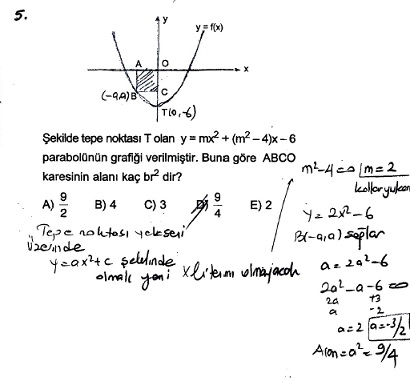 5.
y
y = f(x)
A
O
x
B
C
(-a,a)
T(0,-6)
Şekilde tepe noktası T olan y = mx² + (m² – 4)x – 6
parabolünün grafiği verilmiştir. Buna göre ABCO
karesinin alanı kaç br² dir?
A) 9/2 B) 4 C) 3 D) 9/4 E) 2
Tepe noktası y ekseni
üzerinde
y = ax² + c şeklinde
olmalı yani x li terim olmayacak
m² - 4 = 0 m = 2
kollar yukarı
y = 2x² - 6
B(-a,a) sağlar
a = 2a² - 6
2a² - a - 6 = 0
2a +3
a -2
a = 2 a = -3/2
Alan = a² = 9/4